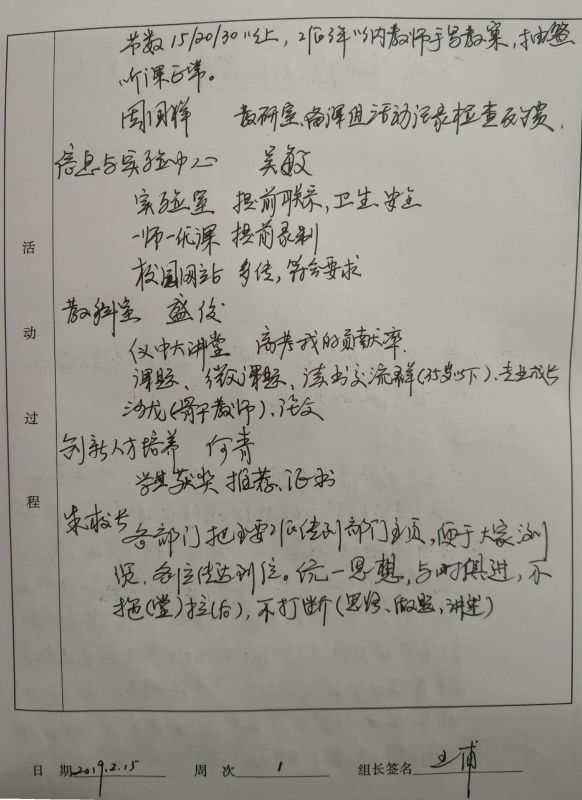 节数15/20/30以上，2区5年以内教师手写教案，抽签
听课正常。
周国祥 教研室、备课组活动记录检查反馈.
信息与实验中心 吴敏
实验室 提前联系，卫生、安全
一师一优课 提前录制
校园网站 多传，符合要求
教科室 盛俊
仪中大讲堂 高考我的贡献率.
课题、微课题、读书交流群(35岁以下)、专业成长
沙龙(骨干教师).论文
创新人才培养 何青
学生获奖 推荐、证书
朱校长
各部门把主要工作传到部门主页，便于大家浏
览，各位传达到位。统一思想，与时俱进，不
拖(堂)拉(后)，不打断(思路、做题、讲述)
活
动
过
程
日 期 2019.2.15 周 次 1 组长签名 王甫